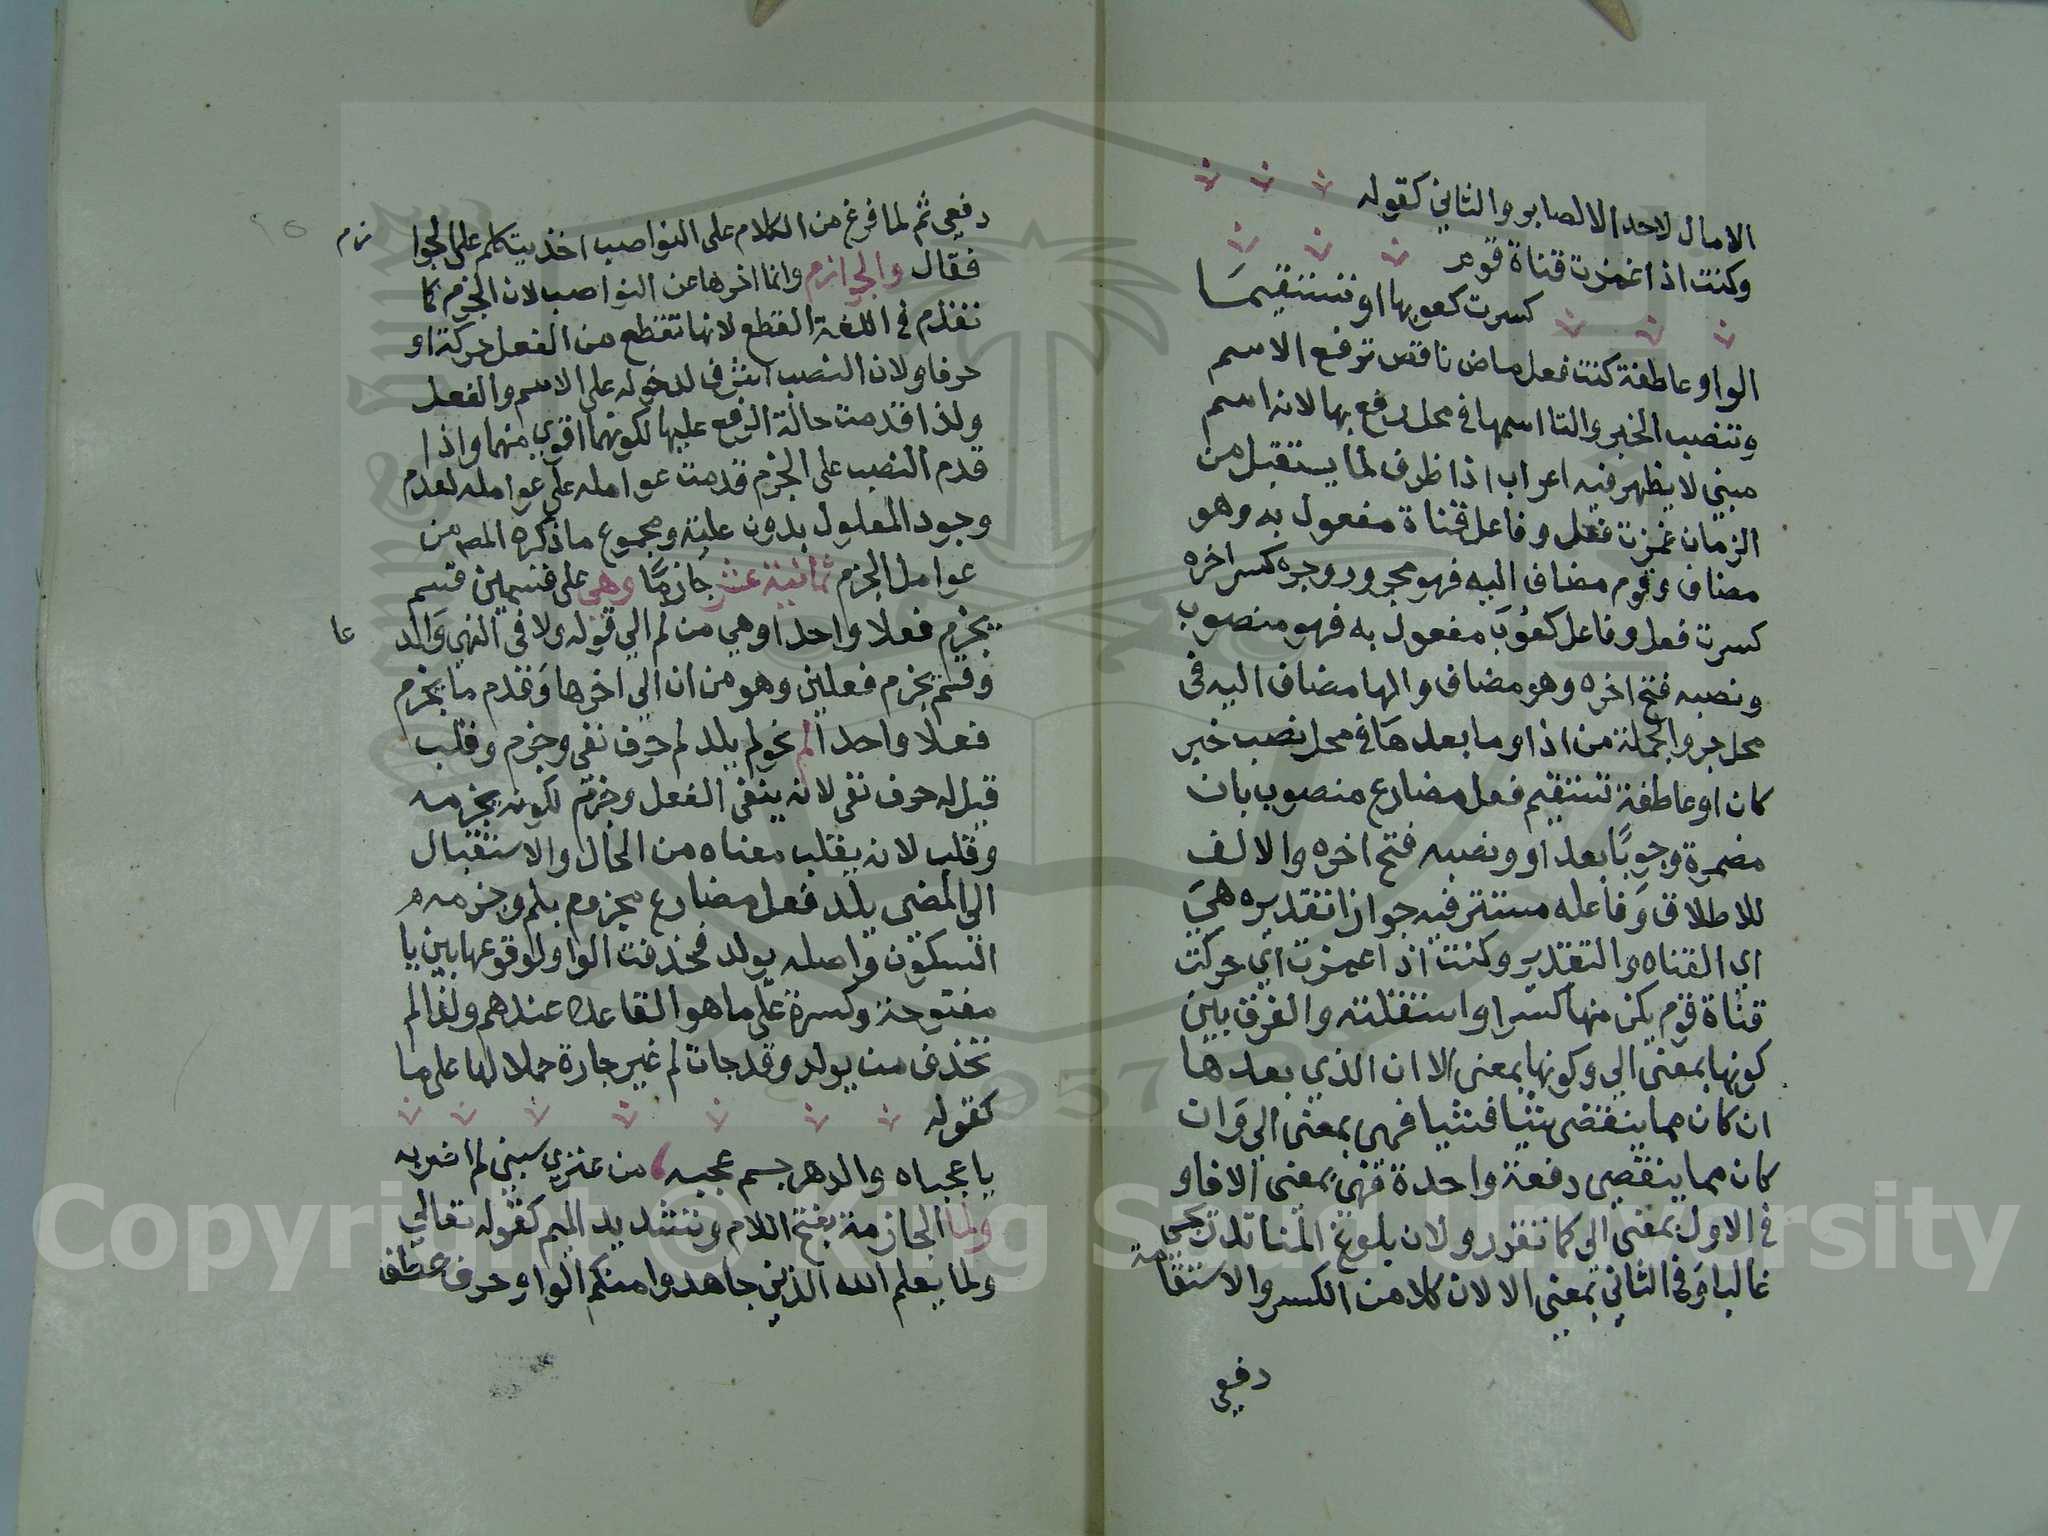 الامال لاحد الالصابر والثاني كقوله
وكنت اذا غمزت قناة قوم
كسرت كعوبها او تستقيما
الواو عاطفة كنت فعل ماض ناقص ترفع الاسم
وتنصب الخبر والتا اسمها في محل رفع بها لانه اسم
مبني لا يظهر فيه اعراب اذا ظرف لما يستقبل من
الزمان غمزت فعل وفاعل قناة مفعول به وهو
مضاف وقوم مضاف اليه فهو مجرور وجره كسر اخره
كسرت فعل وفاعل كعوب مفعول به فهو منصوب
ونصبه فتح اخره وهو مضاف والها مضاف اليه في
محل جر والجملة من اذا وما بعدها في محل نصب خبر
كان او عاطفة تستقيم فعل مضارع منصوب بان
مضمرة وجوبا بعد او ونصبه فتح اخره والالف
للاطلاق وفاعله مستتر فيه جوازا تقديره هي
اي القناه والتقدير وكنت اذا غمزت اي حركت
قناة قوم يكن منها كسرا واستقلته والفرق بين
كونها بمعنى الي وكونها بمعنى الا ان الذي بعدها
ان كان مما ينقضى شيا فشيا فهى بمعنى الي وان
كان مما ينقضى دفعة واحدة فهي بمعنى الا فاو
في الاول بمعنى الي كما تقرر ولان بلوغ المنا تدريجي
غالبا وفى الثاني بمعنى الا لان كلا من الكسر والاستقامة
دفعي
دفعي ثم لما فرغ من الكلام على النواصب اخذ يتكلم على الجوا زم
فقال والجوازم وانما اخرها عن النواصب لان الجزم كما
تقدم في اللغة القطع لانها تقطع من الفعل حركة او
حرفا ولان النصب اشرف لدخوله على الاسم والفعل
ولذا قدمت حالة الرفع عليها لكونهما اقوي منهما واذا
قدم النصب على الجزم قدمت عوامله على عوامله لعدم
وجود المعلول بدون علته ومجموع ما ذكره المص من
عوامل الجزم ثمانية عشر جازما وهي على قسمين قسم
يجزم فعلا واحدا وهي من لم الي قوله ولا في النهي والد عا
وقسم يجزم فعلين وهو من ان الي اخرها وقدم ما يجزم
فعلا واحدا لم نحو لم يلد لم حرف نفي وجزم وقلب
قيل له حرف نفي لانه ينفى الفعل وجزم لكونه يجزمه
وقلب لانه يقلب معناه من الحال والاستقبال
الي المضي يلد فعل مضارع مجزوم بلم وجزمه
السكون واصله يولد فحذفت الواو لوقوعها بين يا
مفتوحة وكسرة على ما هو القاعدة عندهم ولذا لم
تحذف من يولد وقد جات لم غير جازمة حملا لها على ما
كقوله
يا عجباه والدهر جسم عجبه من عنزي سبني لم اضربه
ولما الجازمة بفتح اللام وتشديد الميم كقوله تعالي
ولما يعلم الله الذين جاهدوا منكم الواو حرف عطف
Copyright © King Saud University
1957